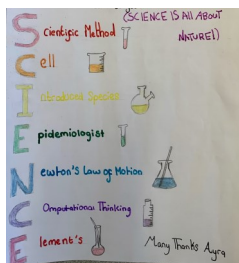 (SCIENCE IS All ABOUT
NATURE!)
Scientific Method
Cell
Introduced Species
E epidemiologist
Newton's Law of Motion
Computational Thinking
Element's
Many Thanks Ayra